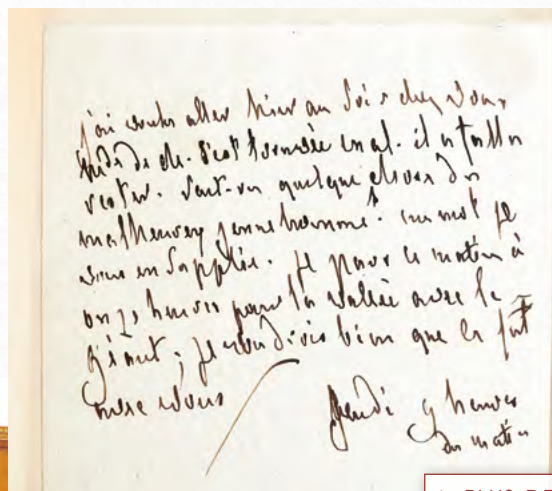 j'ai voulu aller hier au soir chez vous
Mde de Ch. s'est trouvée mal. il a fallu
rester. Sait-on quelque chose du
malheureux jeune homme ? un mot je
vous en supplie. je pars ce matin à
onze heures pour la vallée avec le
géant ; je voudrois bien que ce fut
avec vous
jeudi 9 heures
du matin
PLUS DE